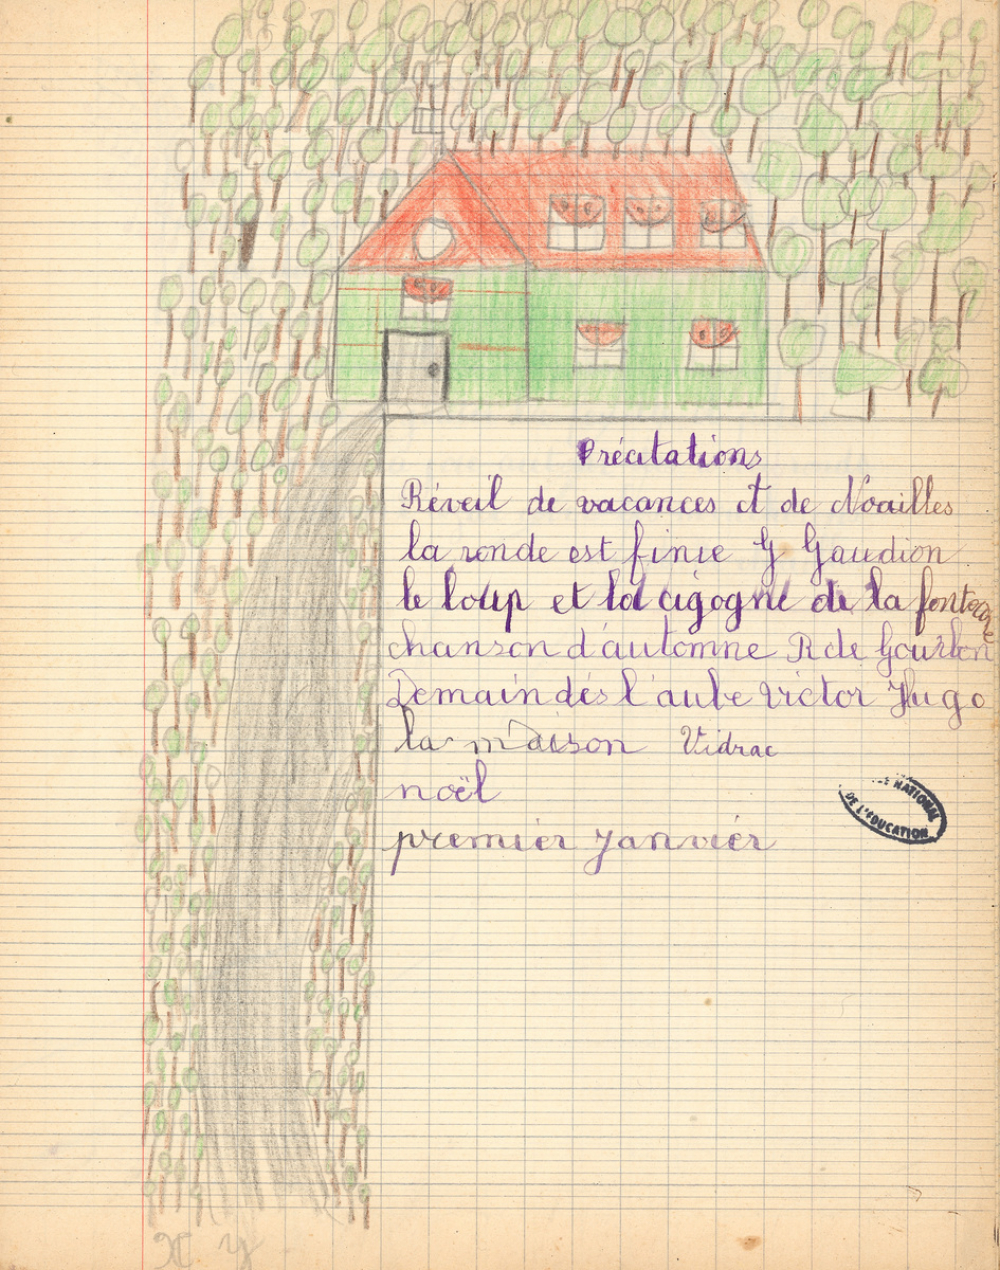 Récitations
Réveil de vacances ct de Noailles
la ronde est finie G Gaudion
le loup et la cigogne de la fontaine
chanson d'automne R de Gourbon
Demain dés l'aube Victor Hugo
la maison Vidrac
noël
premier janvier
NATIONAL
DE L'ÉDUCATION
x y